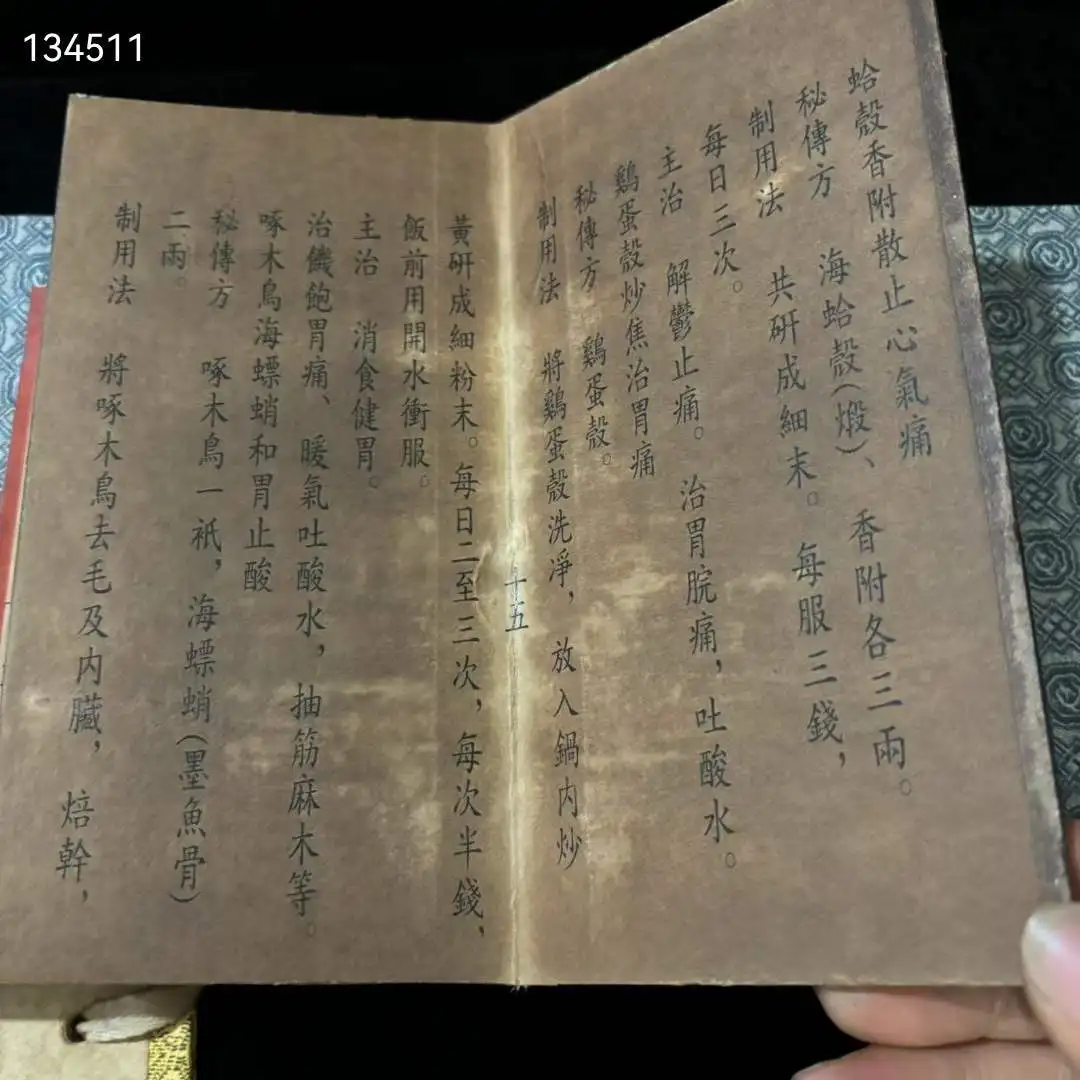 134511
蛤殼香附散止心氣痛
秘傳方 海蛤殼(煅)、香附各三兩。
制用法 共研成細末。每服三錢,
每日三次。
主治 解鬱止痛。治胃脘痛,吐酸水。
鷄蛋殼炒焦治胃痛
秘傳方 鷄蛋殼。
制用法 將鷄蛋殼洗净,放入鍋内炒
十五
黃研成細粉末。每日二至三次,每次半錢,
飯前用開水衝服。
主治 消食健胃。
治饑飽胃痛、暖氣吐酸水,抽筋麻木等。
啄木鳥海螵蛸和胃止酸
秘傳方 啄木鳥一衹,海螵蛸(墨魚骨)
二兩。
制用法 將啄木鳥去毛及内臟,焙幹,